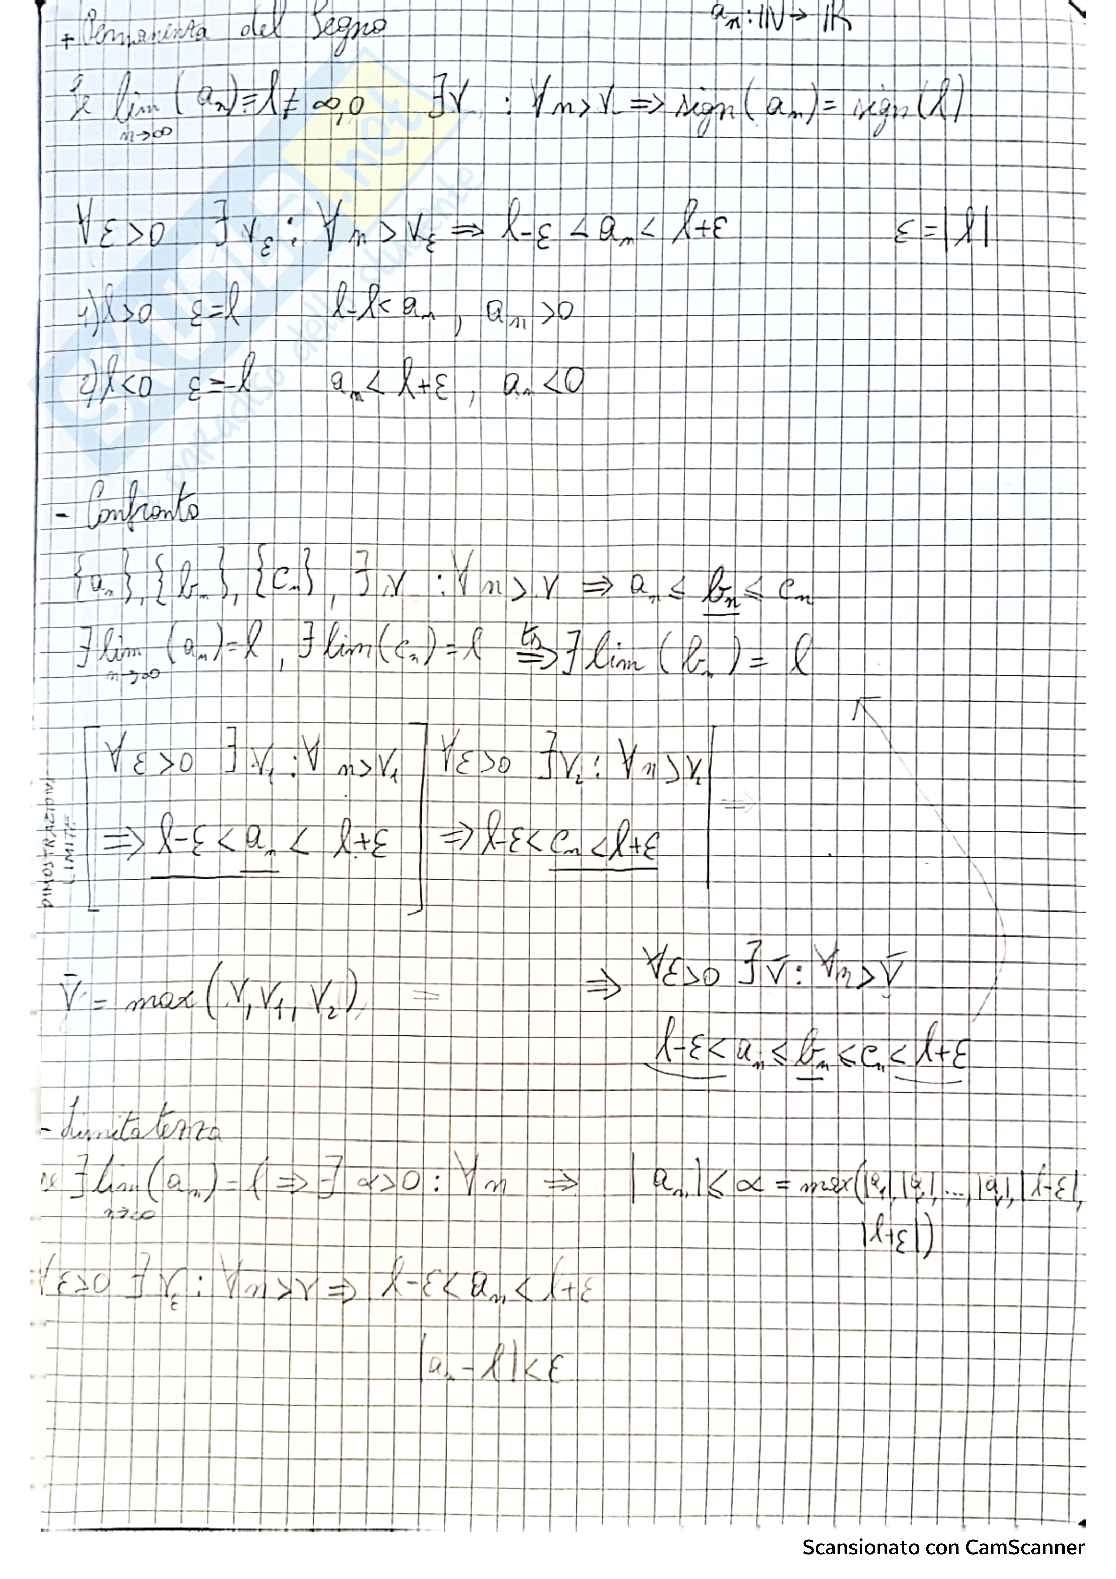 aₙ: ℕ → ℝ
+ Permanenza del Segno
Se lim (aₙ) = l ≠ ∞,0 ∃ν : ∀n>ν ⇒ sign(aₙ) = sign(l)
n→∞
∀ε>0 ∃ν_ε : ∀n>ν_ε ⇒ l-ε < aₙ < l+ε ε=|l|
1) l>0 ε=l l-l<aₙ , aₙ>0
2) l<0 ε=-l aₙ< l+ε , aₙ<0
- Confronto
{aₙ}, {bₙ}, {cₙ}, ∃ν : ∀n>ν ⇒ aₙ ≤ bₙ ≤ cₙ
∃ lim (aₙ)=l, ∃ lim(cₙ)=l ⇒ ∃ lim (bₙ) = l
n→∞
DIMOSTRAZIONE LIMITE
∀ε>0 ∃ν₁ : ∀n>ν₁ ∀ε>0 ∃ν₂ : ∀n>ν₂ ⇒
⇒ l-ε < aₙ < l+ε ⇒ l-ε < cₙ < l+ε
ν̄ = max(ν, ν₁, ν₂) = ⇒ ∀ε>0 ∃ν̄ : ∀n>ν̄
l-ε < aₙ ≤ bₙ ≤ cₙ < l+ε
- Limitatezza
se ∃ lim (aₙ) = l ⇒ ∃ α>0 : ∀n ⇒ |aₙ| ≤ α = max(|a₁|, |a₂|, ..., |aᵥ|, |l-ε|,
n→∞
|l+ε|)
∀ε>0 ∃ν_ε : ∀n>ν ⇒ l-ε < aₙ < l+ε
|aₙ - l| < ε
Scansionato con CamScanner